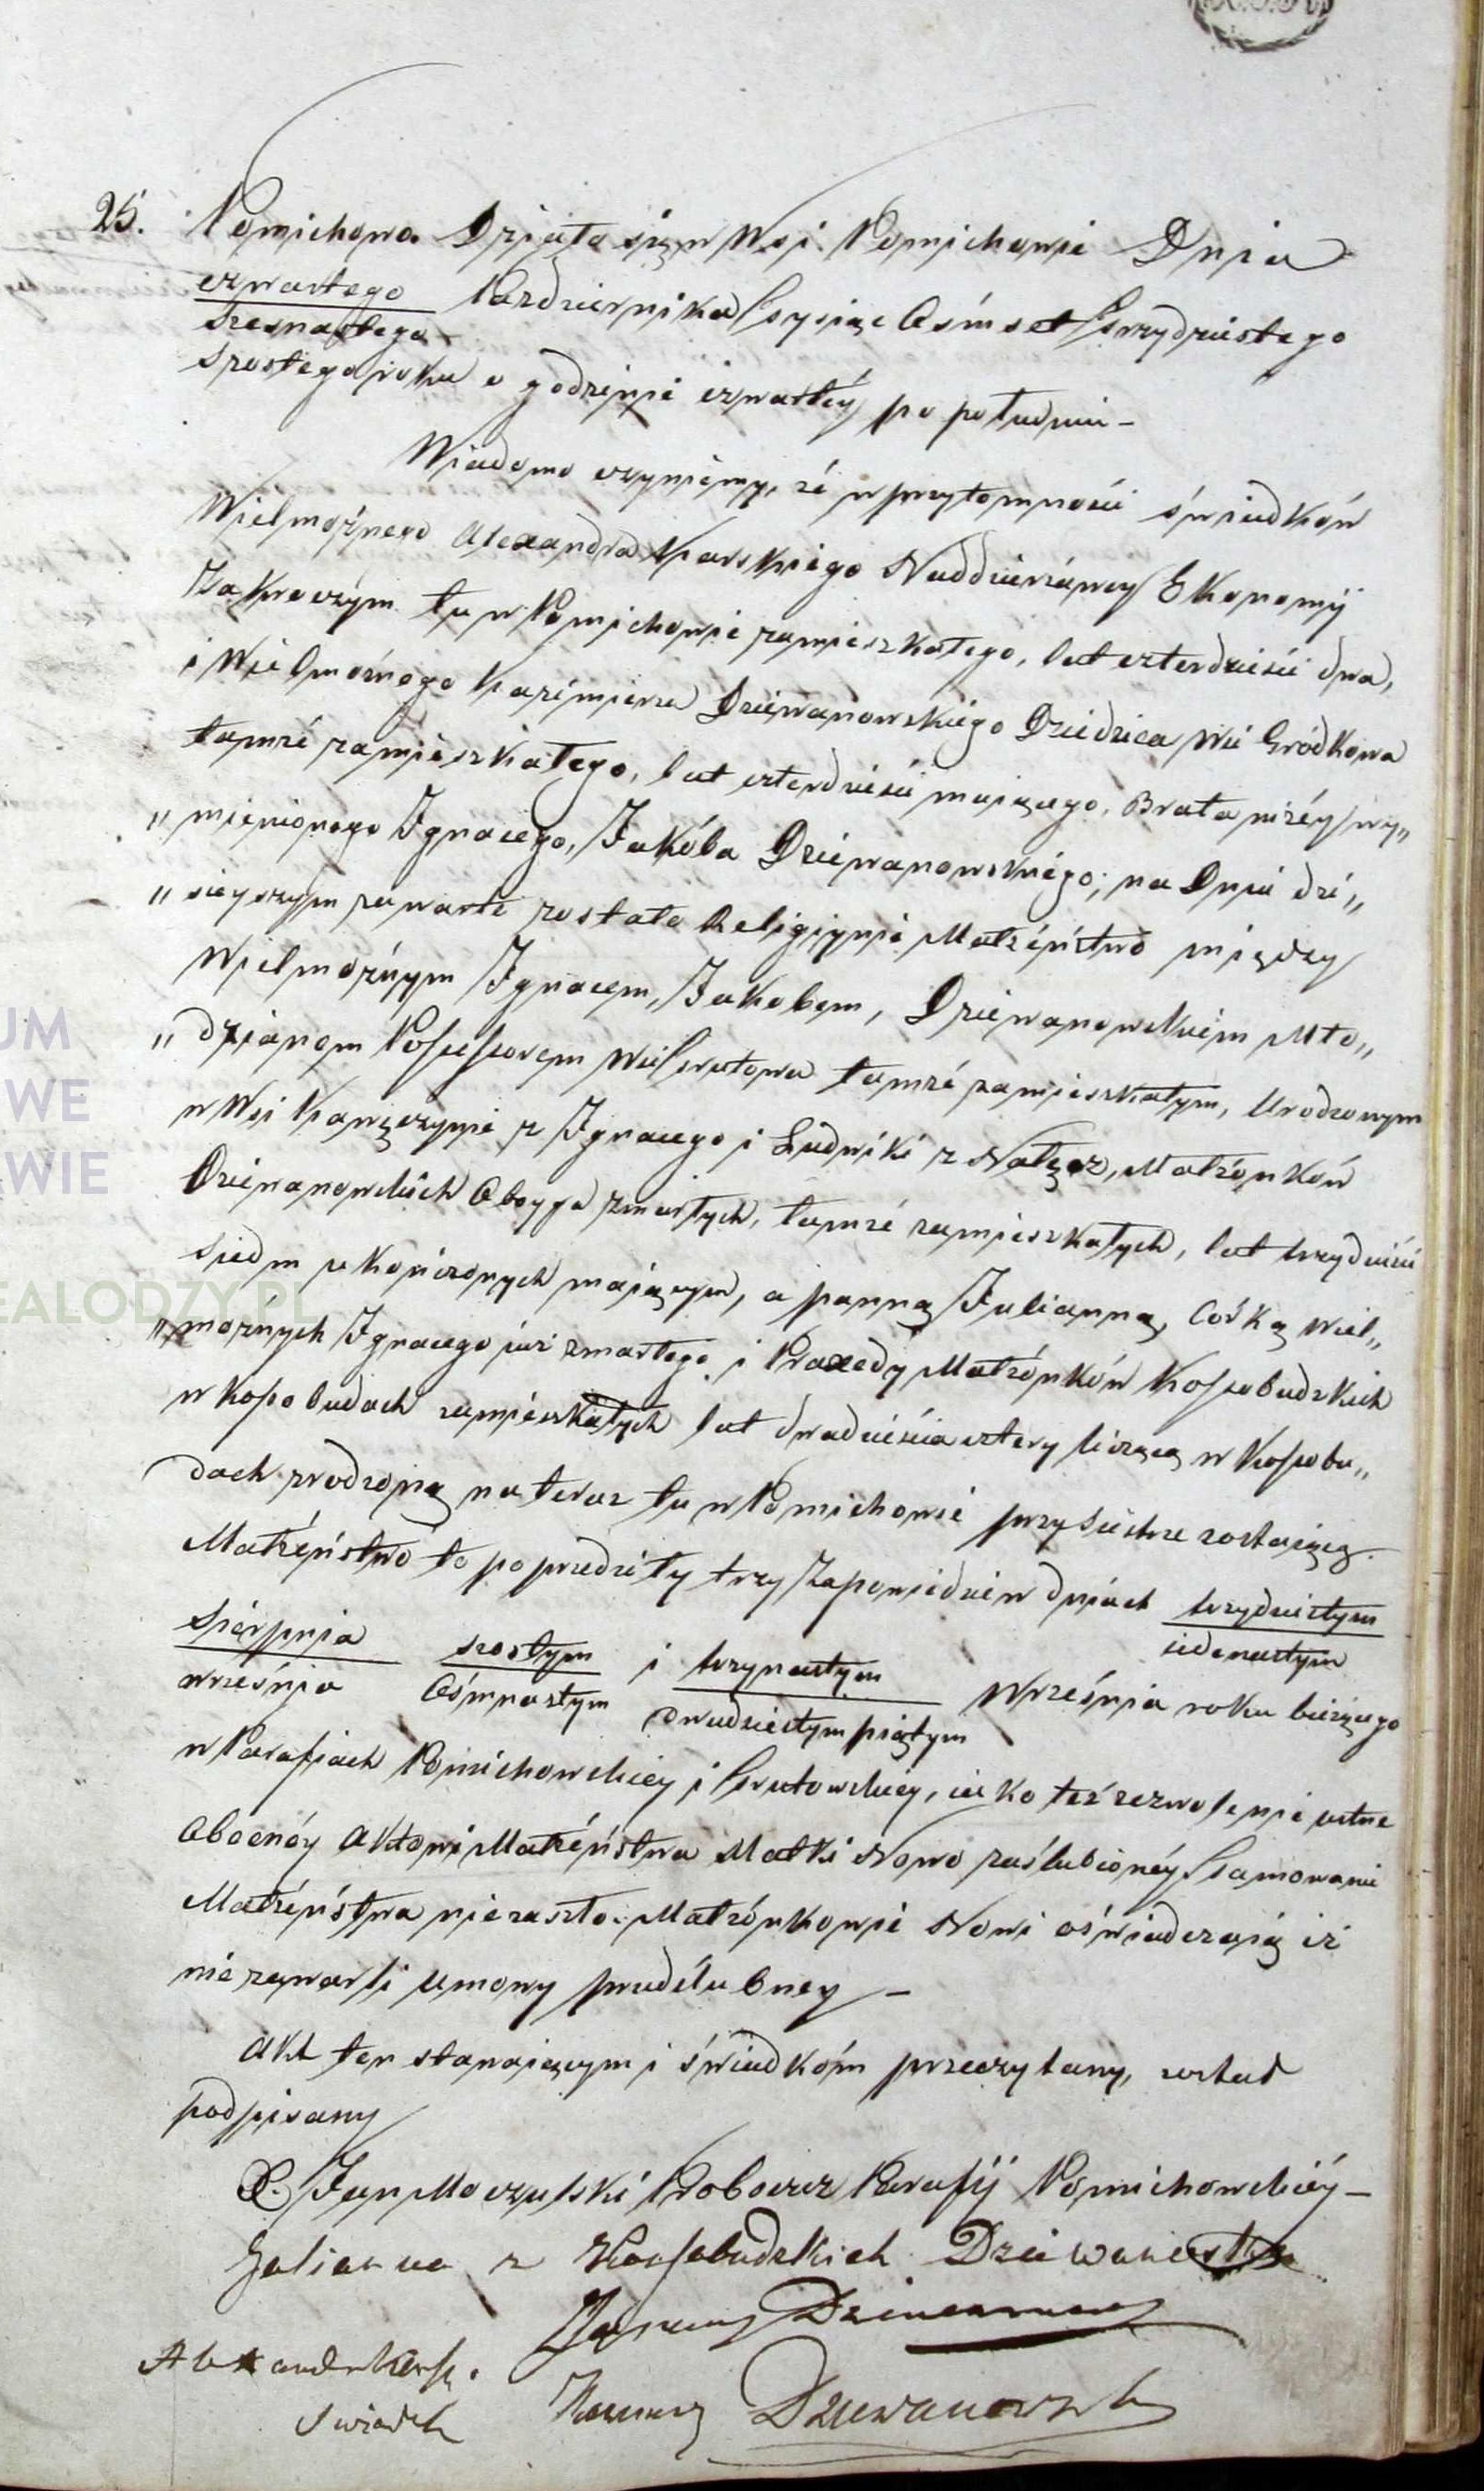 25. Pomichowo. Działo się w Wsi Pomichowie Dnia
czwartego / szesnastego Października Tysiąc Ośmset Trzydziestego
szostego roku o godzinie czwartéy po południu –
Wiadomo czyniemy, że w przytomności świadków
Wielmożnego Alexandra Karskiego Naddzierżawcy Ekonomij
Zakroczym tu w Pomichowie zamieszkałego, lat czterdzieści dwa,
i Wielmożnego Kazimierza Dziewanowskiego Dziedzica Wsi Gródkowa
tamże zamieszkałego, lat czterdzieści maiącego, Brata niżéy wy„
„mienionego Ignacego, Jakóba Dziewanowskiego; na Dniu dzi„
„sieyszym zawarte zostało Religiynie Małżeństwo między
Wielmożnym Ignacem, Jakobem, Dziewanowskiem Mło„
„dzianem Possessorem Wsi tamże zamieszkałym, Urodzonym
w Wsi z Ignacego i Ludwiki z Nałęcz, Małżonków
Dziewanowskich Oboyga zmarłych, tamże zamieszkałych, lat trzydzieści
siedm ukończonych maiącym, a panną Julianną, Córką Wiel„
„możnych Ignacego już zmarłego i Praxedy Małżonków Kossobudzkich
w Kosobudach zamieszkałych lat dwadzieścia cztery liczącą w Kossobu„
dach zrodzoną na teraz tu w Pomichowie przy Siestrze zostaiącą.
Małżeństwo to poprzedziły trzy Zapowiedzi w dniach trzydziestym / iedenastym
Sierpnia / września szostym / Ośmnastym i trzynastym / dwudziestym piątym Września roku bieżącego
w Parafiach Pomichowskiey i iako też zezwolenie ustne
Obecnéy Aktowi Małżeństwa Matki Nowo zaślubionéy Tamowanie
Małżeństwa nie zaszło. Małżonkowie Nowi oświadczaią iż
nie zawarli Umowy przedślubney –
Akt ten stawaiącym i świadkóm przeczytany, został
podpisany
X. Jan Moczulski Proboszcz Parafij Pomichowskiéy –
Julianna z Kossobudzkich Dziewanowska
Ignacy Dziewanowski
Alexander Karski
Swiadek Kazimierz Dziewanowski
UM
WE
WIE
EALODZY.PL